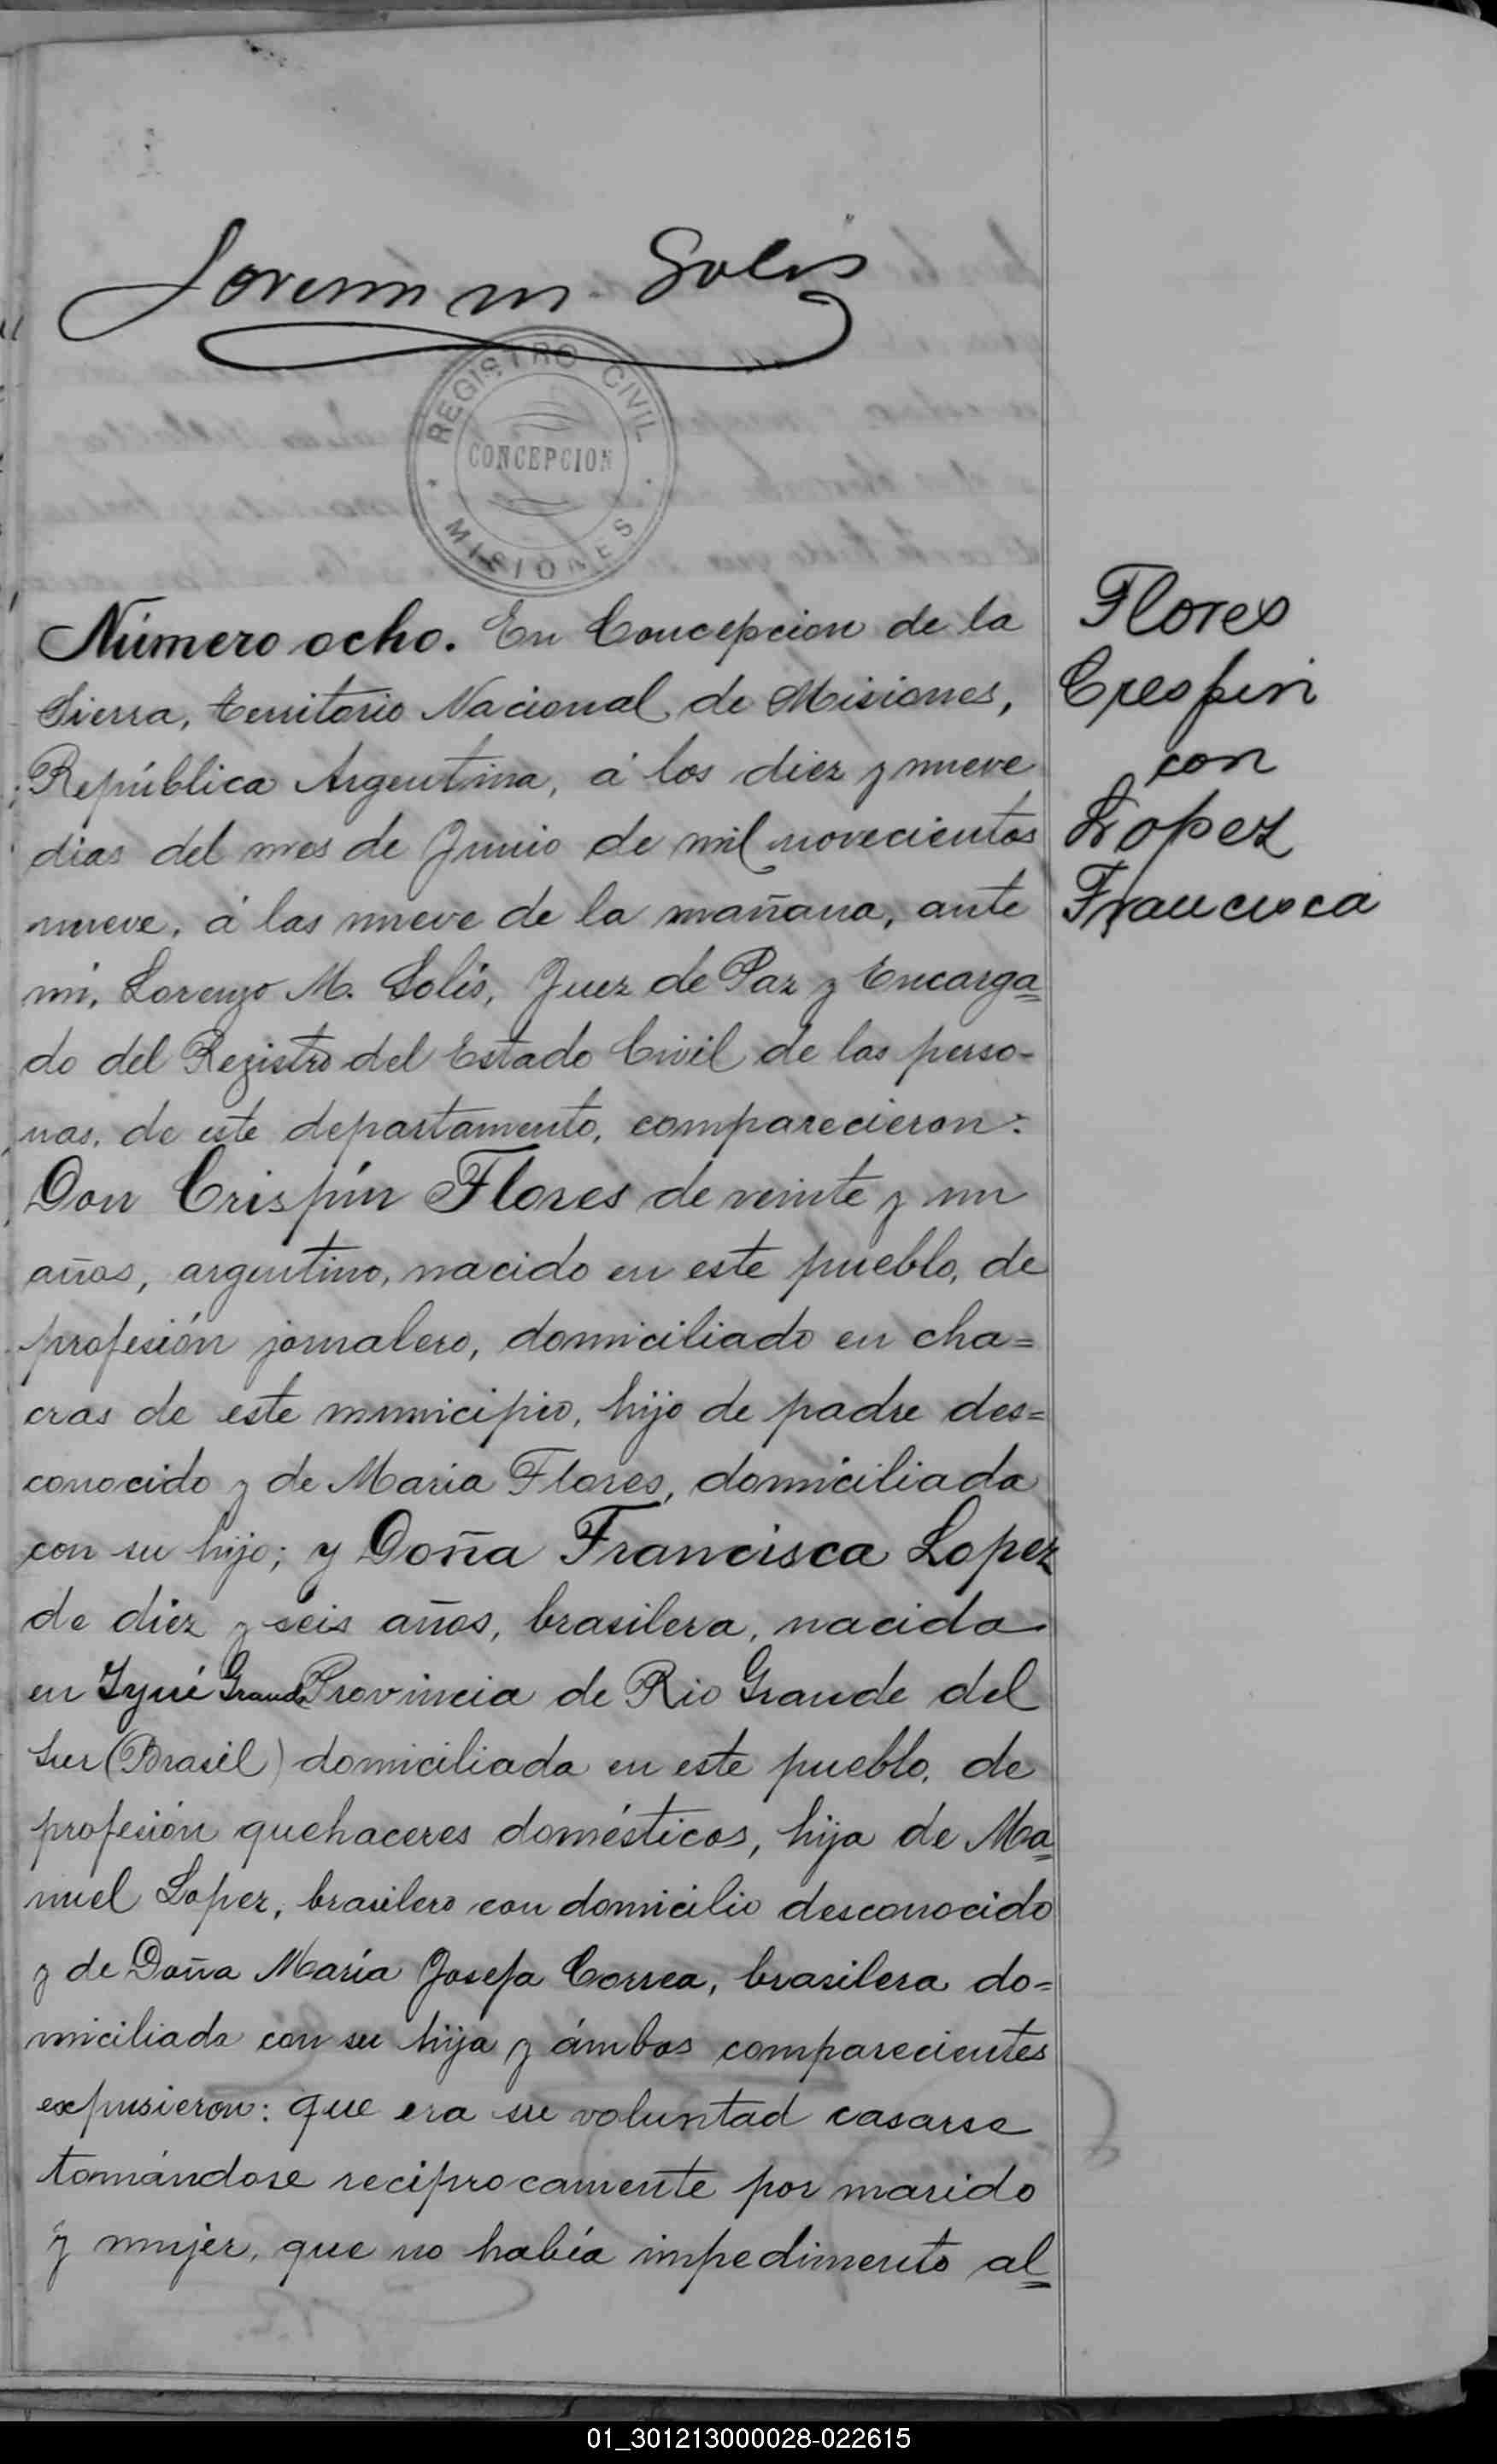 Lorenzo M. Solis
REGISTRO CIVIL
CONCEPCION
MISIONES
Número ocho. En Concepcion de la
Sierra, territorio Nacional de Misiones,
República Argentina, á los diez y nueve
dias del mes de Junio de mil novecientos
nueve, á las nueve de la mañana, ante
mi, Lorenzo M. Solis, Juez de Paz y Encarga=
do del Registro del Estado Civil de las perso-
nas, de este departamento, comparecieron:
Don Crispín Flores de veinte y un
años, argentino, nacido en este pueblo, de
profesión jornalero, domiciliado en cha=
cras de este municipio, hijo de padre des=
conocido y de Maria Flores, domiciliada
con su hijo; y Doña Francisca Lopez
de diez y seis años, brasilera, nacida
en Grande Provincia de Rio Grande del
Sur (Brasil) domiciliada en este pueblo, de
profesión quehaceres domésticos, hija de Ma=
nuel Lopez, brasilero con domicilio desconocido
y de Doña María Josefa Correa, brasilera do=
miciliada con su hija y ámbos comparecientes
expusieron: que era su voluntad casarse
tomándose reciprocamente por marido
y mujer, que no había impedimento al=
Flores
Crespin
con
Lopez
Francisca
01_301213000028-022615